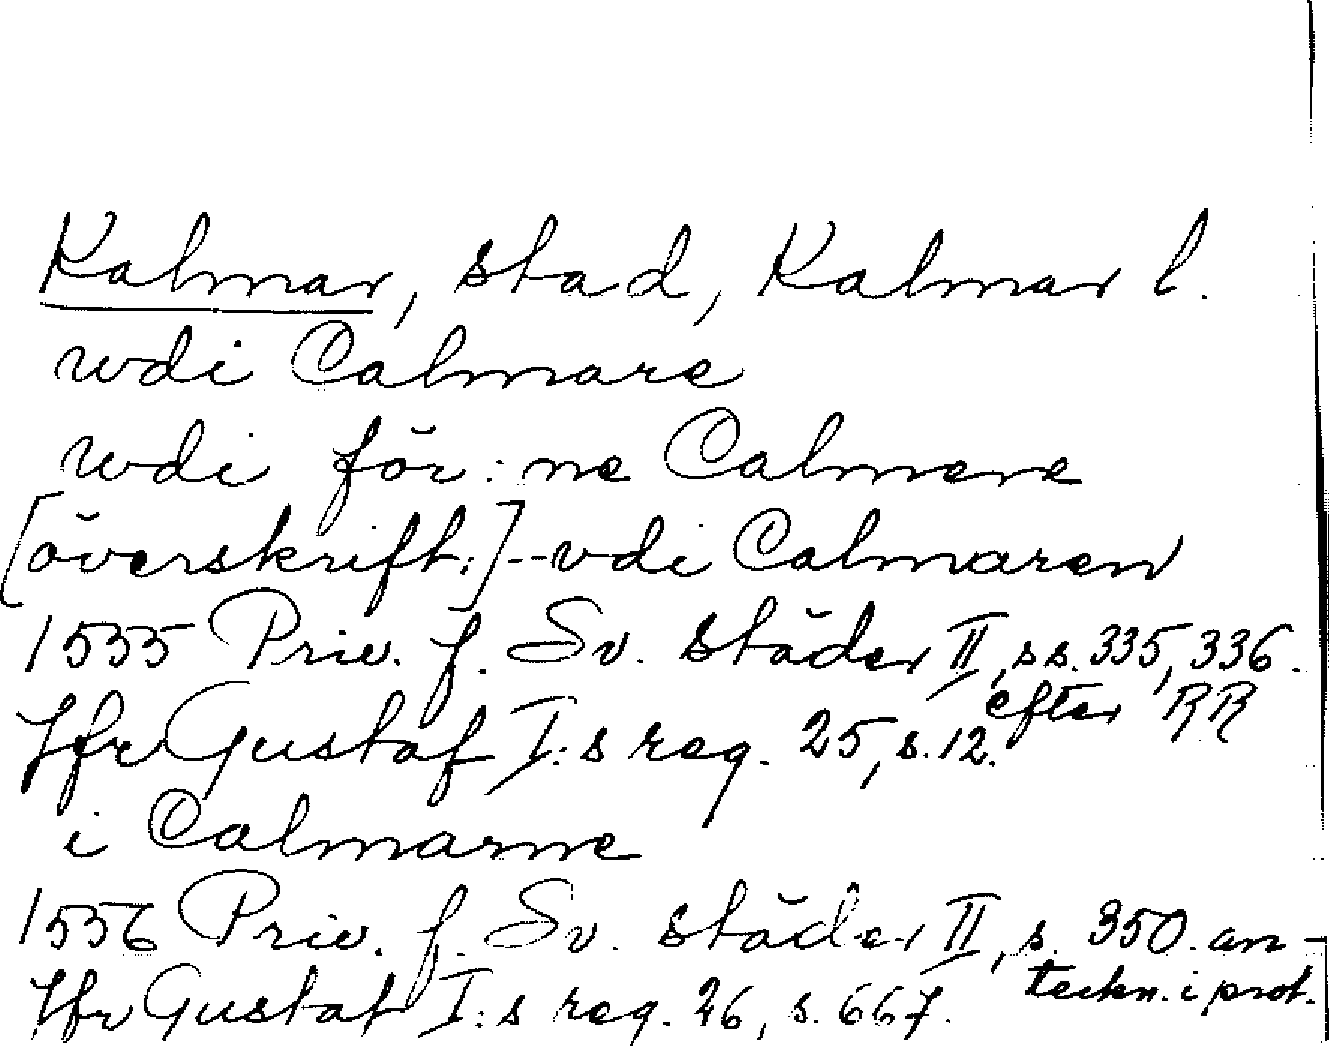 Kalmar, stad, Kalmar l.
wdi Calmare
wdi för:ne Calmere
[överskrift:]--vdi Calmaren
1555 Priv. f. Sv. städer II, ss. 335, 336.
efter RR
Jfr Gustaf I:s reg. 25, s. 12.
i Calmarne
1556 Priv. f. Sv. städer II, s. 350. an-
teckn. i prot.
Jfr Gustaf I:s reg. 26, s. 667.